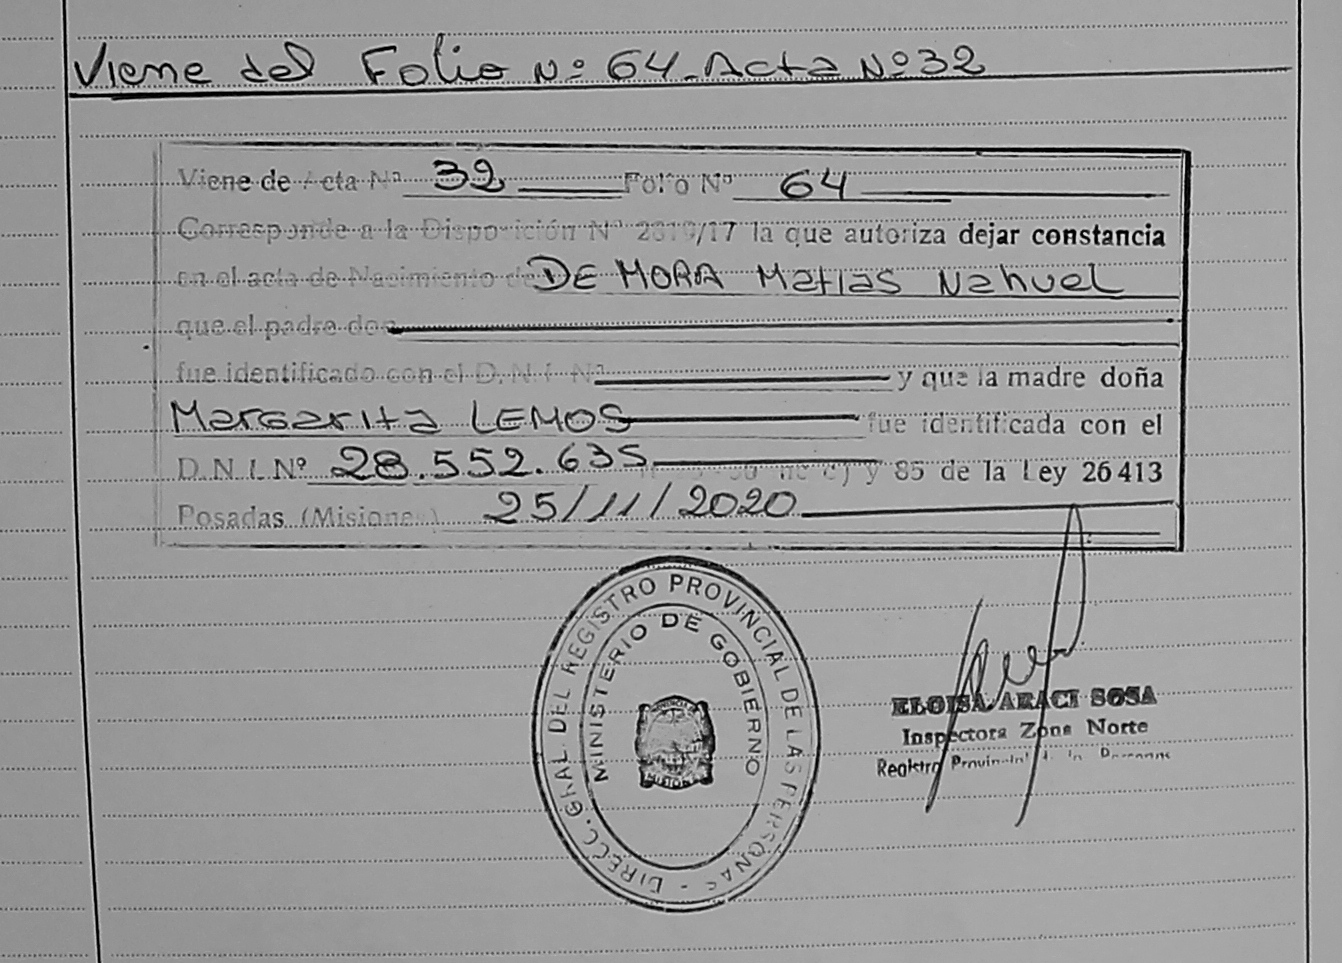 Viene del Folio Nº 64. Acta Nº 32
Viene de Acta Nº 32 Folio Nº 64
Corresponde a la Disposición Nº /17 la que autoriza dejar constancia
en el acta de Nacimiento de DE MORA Matias Nahuel
que el padre don
fue identificado con el D.N.I. Nº y que la madre doña
Margarita LEMOS fue identificada con el
D.N.I. Nº 28.552.635 y 85 de la Ley 26413
Posadas (Misiones) 25/11/2020
DIRECC. GRAL. DEL REGISTRO PROVINCIAL DE LAS PERSONAS -
MINISTERIO DE GOBIERNO
MISIONES
ELOISA ARACI SOSA
Inspectora Zona Norte
Registro Provincial de las Personas